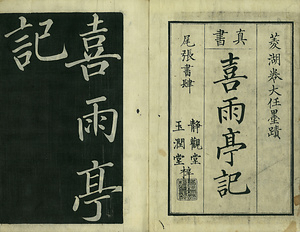 菱湖巻大任墨蹟
真書
喜雨亭記
尾張書肆
静觀堂
玉潤堂
梓
喜雨亭
記